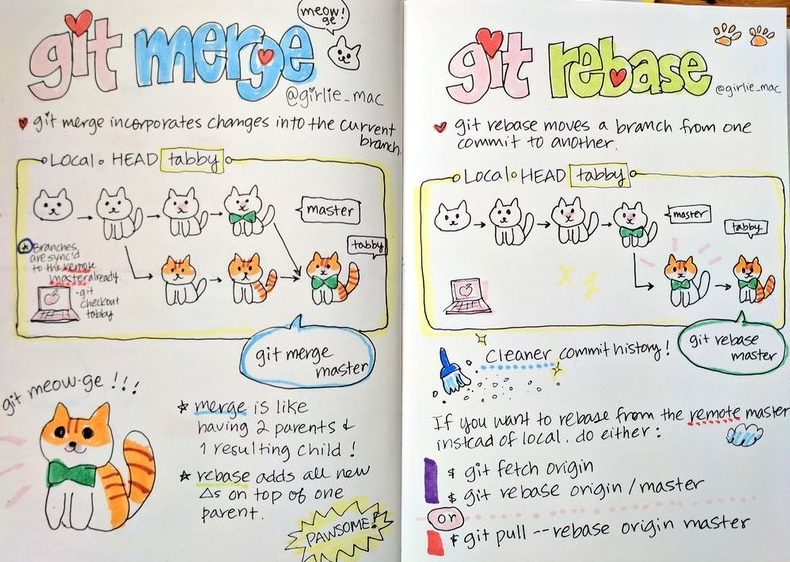 git merge
meow!
ge
@girlie_mac
git merge incorporates changes into the current
branch.
Local HEAD tabby
master
tabby
Branches
are sync'd
to the remote
master already.
• git
checkout
tabby
git merge
master
git meow-ge !!!
* merge is like
having 2 parents &
1 resulting child !
* rebase adds all new
Δs on top of one
parent.
PAWSOME!
git rebase
@girlie_mac
git rebase moves a branch from one
commit to another.
Local HEAD tabby
master
tabby
git rebase
master
Cleaner commit history!
If you want to rebase from the remote master
instead of local. do either:
$ git fetch origin
$ git rebase origin/master
or
$ git pull --rebase origin master